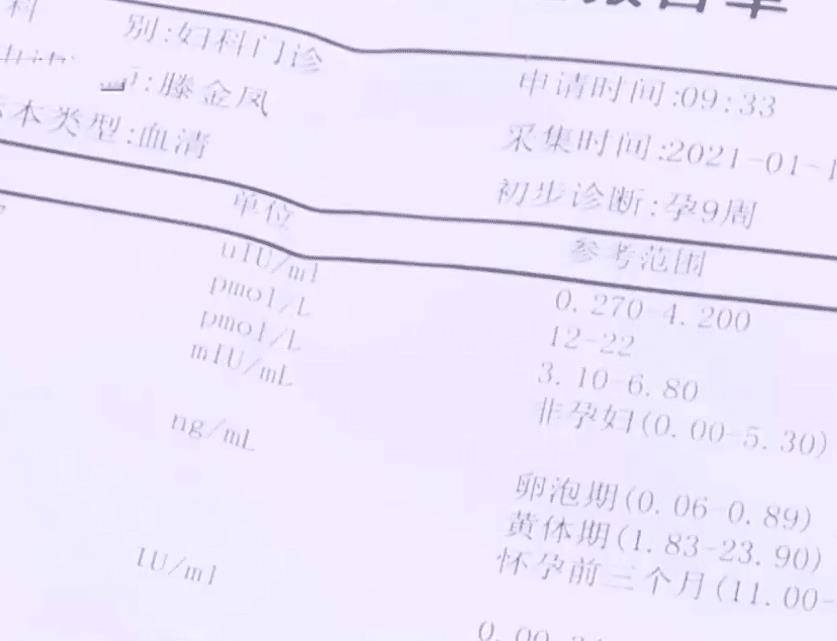 告单
科 别:妇科门诊
申请时间:09:33
师:滕金凤
采集时间:2021-01-1
本类型:血清
初步诊断:孕9周
单位 参考范围
uIU/ml 0.270-4.200
pmol/L 12-22
pmol/L 3.10-6.80
mIU/mL 非孕妇(0.00-5.30)
ng/mL 卵泡期(0.06-0.89)
黄体期(1.83-23.90)
怀孕前三个月(11.00-
IU/ml 0.00-